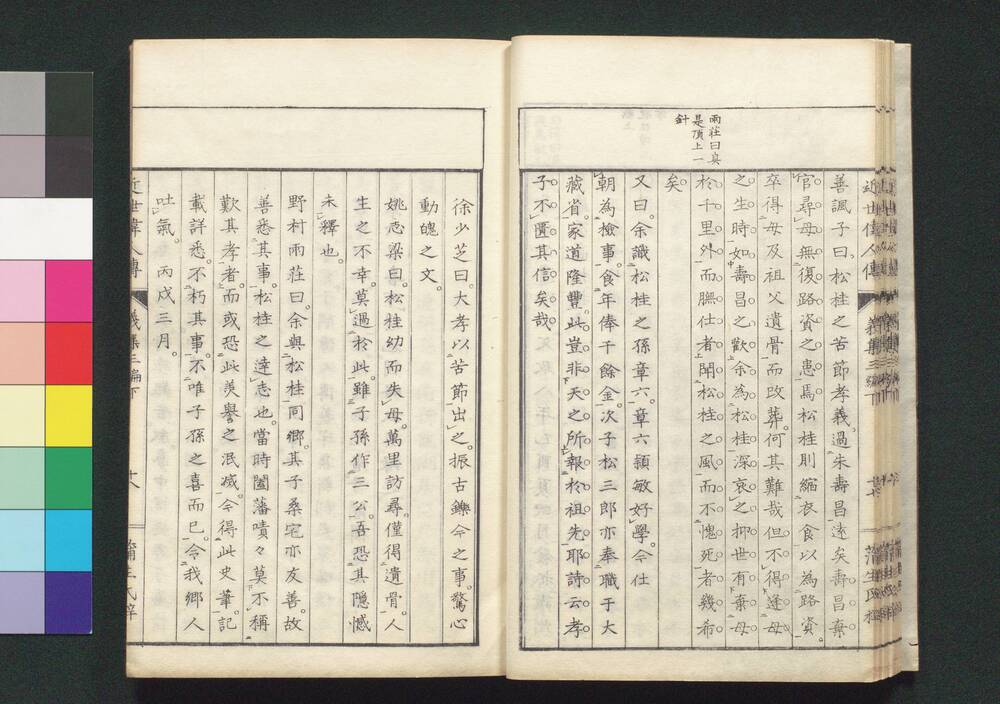 雨荘曰真
是頂上一
針
善諷子曰松桂之苦節孝義過朱壽昌遠矣壽昌棄
官尋母無復路資之患焉松桂則縮衣食以為路資
卒得母及祖父遺骨而改葬何其難哉但不得逢母
之生時如壽昌之歡余為松桂深哀之抑世有棄母
於千里外而膴仕者聞松桂之風而不愧死者幾希
矣
又曰余識松桂之孫章六章六頴敏好學今仕
朝為檢事食年俸千餘金次子松三郎亦奉職于大
藏省家道隆豐此豈非天之所報於祖先耶詩云孝
子不匱其信矣哉
近世偉人傳
義集三編下
蒲生氏梓
徐少芝曰大孝以苦節出之振古鑠今之事驚心
動魄之文
姚志梁曰松桂幼而失母萬里訪尋僅得遺骨人
生之不幸莫過於此雖子孫作三公吾恐其隠憾
未釋也
野村雨荘曰余與松桂同郷其子桑宅亦友善故
善悉其事松桂之達志也當時闔藩嘖々莫不稱
歎其孝者而或恐此羨譽之泯滅今得此史筆記
載詳悉不朽其事不唯子孫之喜而已今我郷人
吐氣 丙戌三月
近世偉人傳
義集三編下
十八
蒲生氏梓